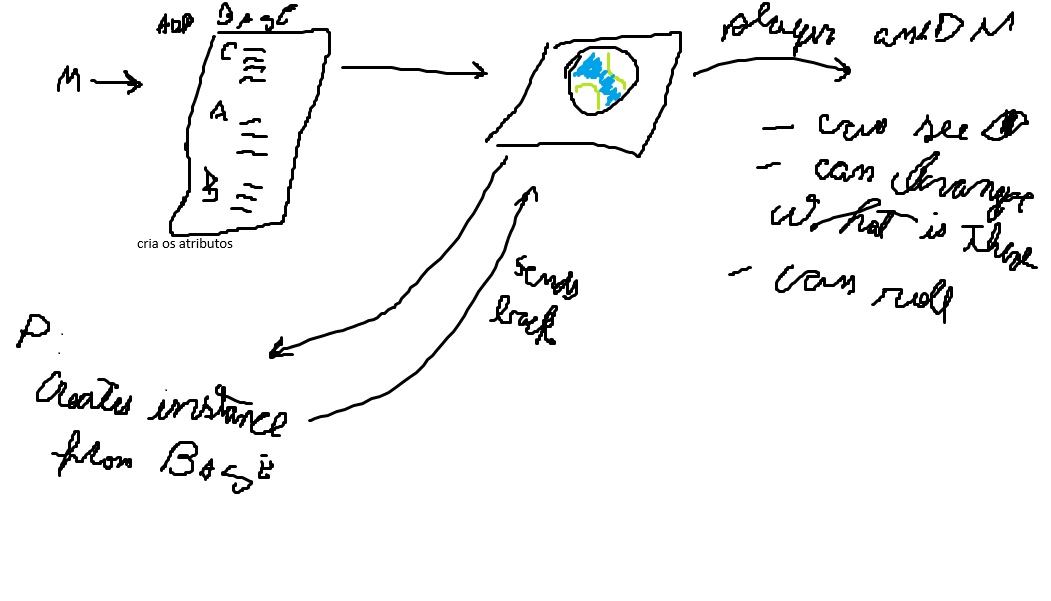 ADD BASE
M
C
A
B
cria os atributos
player and DM
- can see
- can change
What is there
- can roll
sends
back
P:
Creates instance
from BASE